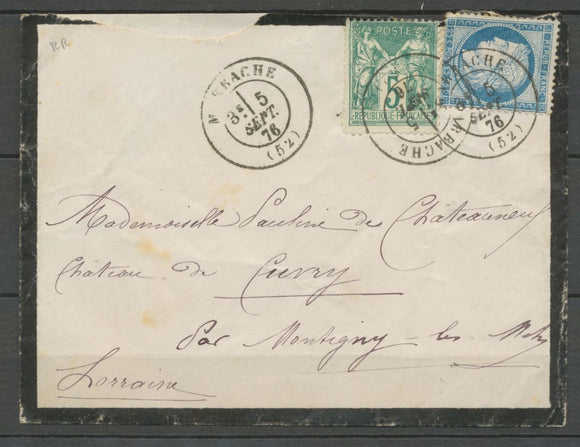 RR
MARBACHE
3E 5
SEPT.
76
(52)
POSTE
5
REPUBLIQUE FRANÇAISE
MARBACHE
5
SEPT.
76
(52)
Mademoiselle Pauline de Châteauneuf
Château de Cuvry
par Montigny-les-Metz
Lorraine